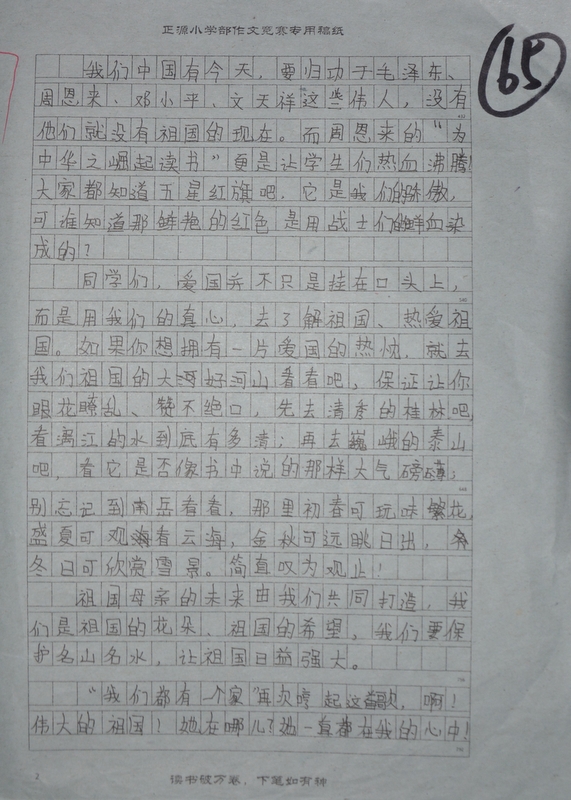 正源小学部作文竞赛专用稿纸
65
我们中国有今天，要归功于毛泽东、
周恩来、邓小平、文天祥这些伟人，没有
他们就没有祖国的现在。而周恩来的“为
中华之崛起读书”更是让学生们热血沸腾！
大家都知道五星红旗吧，它是我们的骄傲，
可谁知道那鲜艳的红色是用战士们的鲜血染
成的？
同学们，爱国并不只是挂在口头上，
而是用我们的真心，去了解祖国、热爱祖
国。如果你想拥有一片爱国的热忱，就去
我们祖国的大好河山看看吧，保证让你
眼花瞭乱、赞不绝口，先去清秀的桂林吧，
看漓江的水到底有多清；再去巍峨的泰山
吧，看它是否像书中说的那样大气磅礴；
别忘记到南岳看看，那里初春可玩味繁花，
盛夏可观看云海，金秋可远眺日出，
冬日可欣赏雪景。简直叹为观止！
祖国母亲的未来由我们共同打造，我
们是祖国的花朵、祖国的希望，我们要保
护名山名水，让祖国日益强大。
“我们都有一个家”再次响起这首歌，啊！
伟大的祖国！她在哪儿？她一直都在我的心中！
2
读书破万卷，下笔如有神